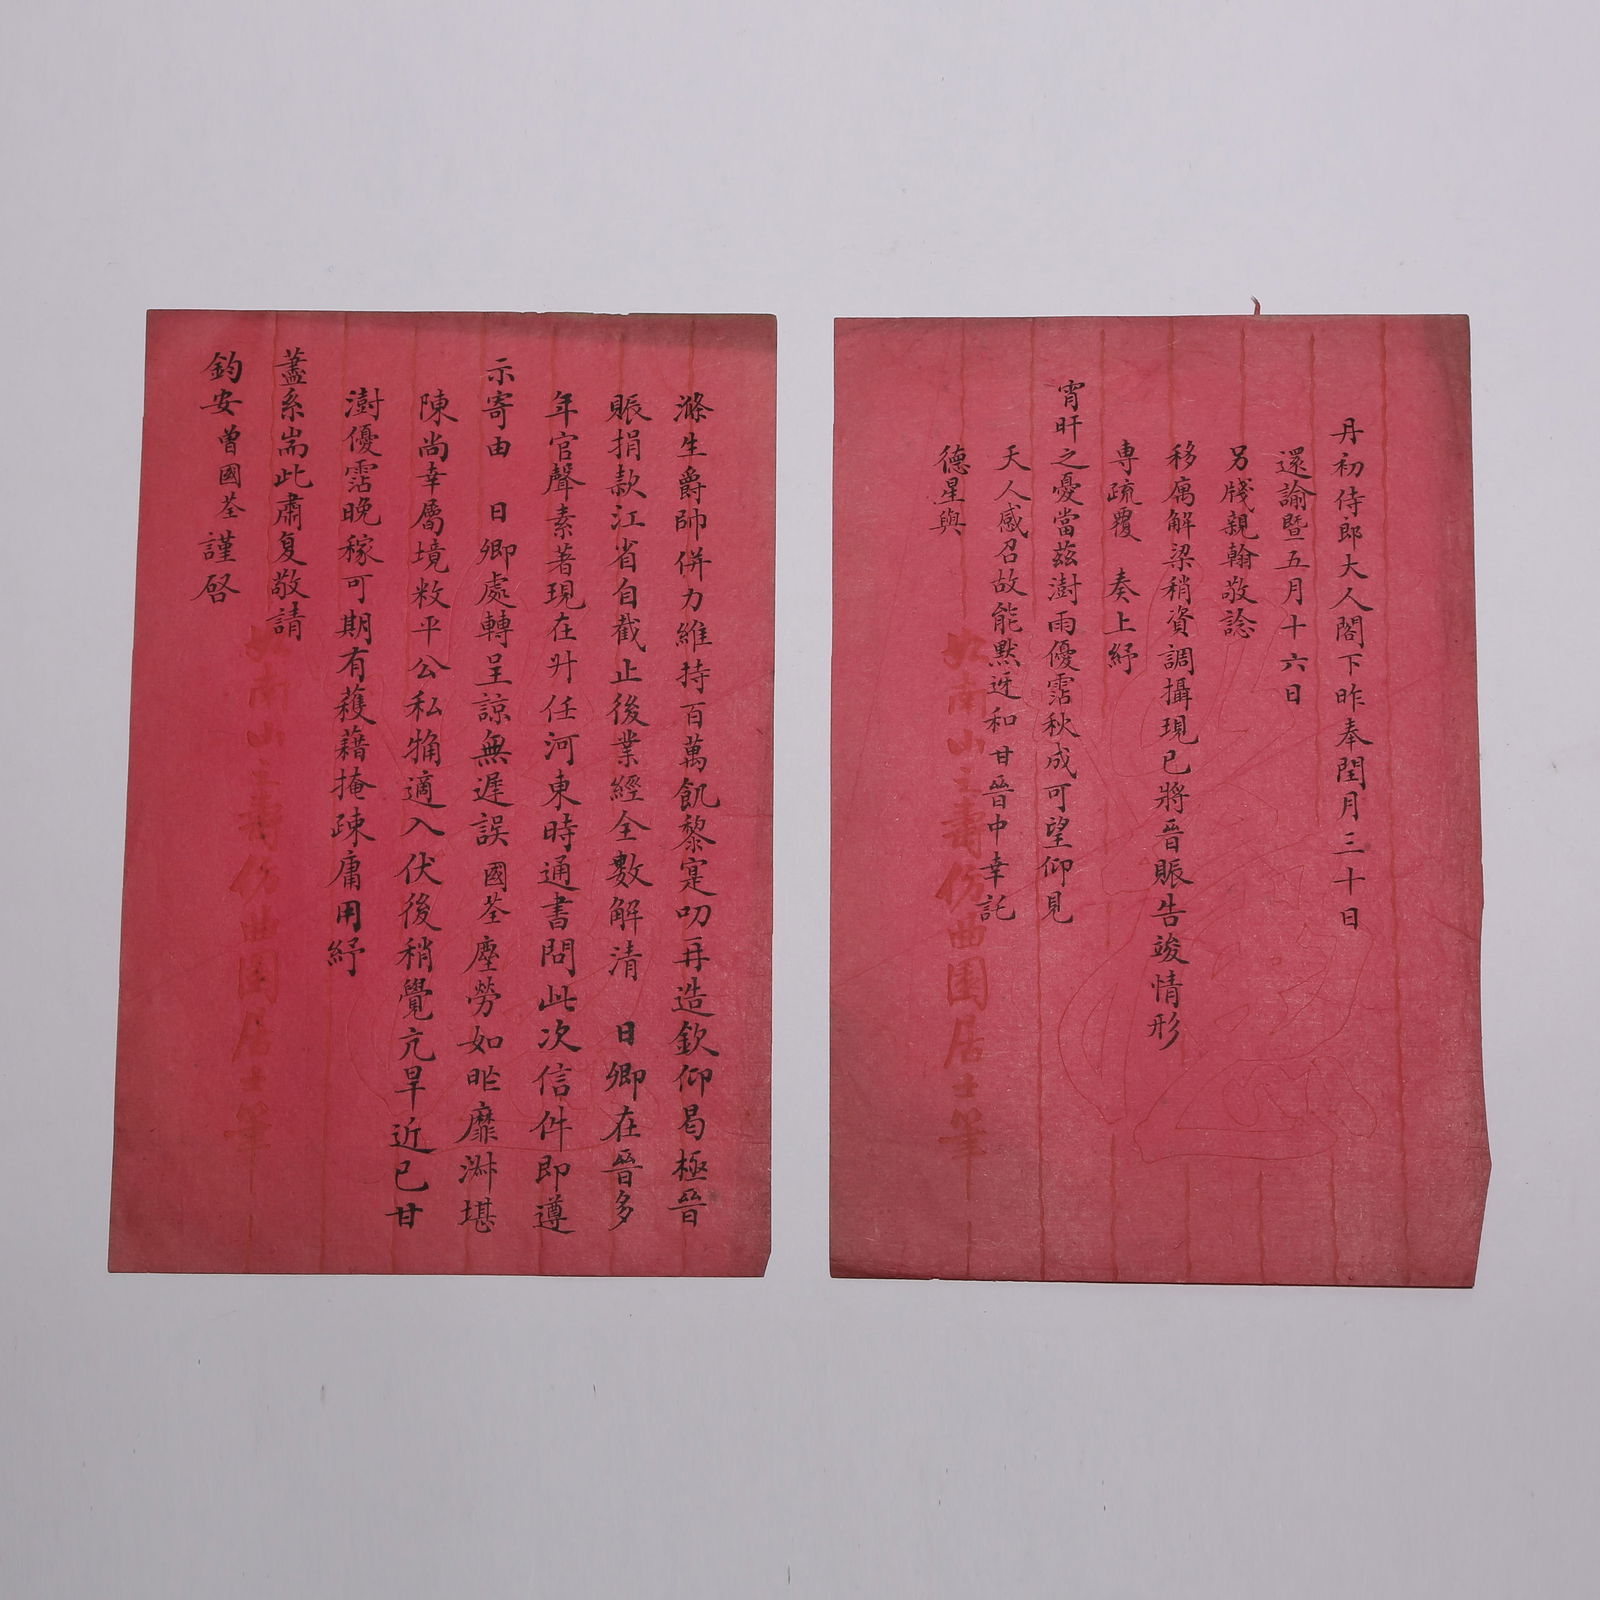 丹初侍郎大人閣下昨奉閏月三十日
還諭暨五月十六日
另牋親翰敬諗
移寓解梁稍資調攝現已將晉賑告竣情形
專疏覆　奏上紓
宵旰之憂當茲澍雨優霑秋成可望仰見
天人感召故能默迓和甘晉中幸託
德星與
滌生爵帥併力維持百萬飢黎寔叨再造欽仰曷極晉
賑捐款江省自截止後業經全數解清　日卿在晉多
年官聲素著現在升任河東時通書問此次信件即遵
示寄由　日卿處轉呈諒無遲誤國荃塵勞如昨靡淋堪
陳尚幸屬境敉平公私牊適入伏後稍覺亢旱近已甘
澍優霑晚稼可期有穫藉掩疎庸用紓
藎系耑此肅复敬請
鈞安曾國荃謹啓
如南山之壽仿曲園居士筆
如南山之壽仿曲園居士筆